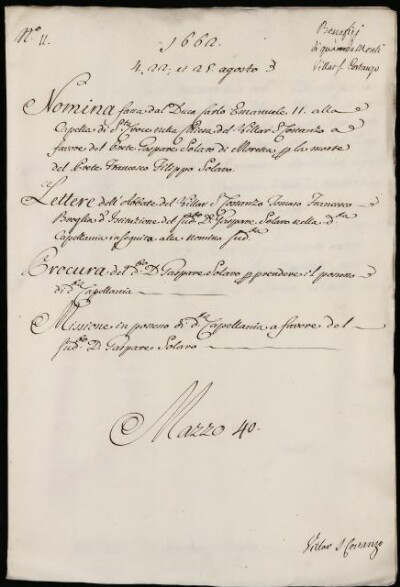 N.º 11.
Benefizj
di quà da Monti
Villar S. Costanzo
1662.
4. 22. et 25. agosto
Nomina fatta dal Duca Carlo Emanuele II. alla
Capella di S.ta Croce nella Chiesa del Villar S. Costanzo a
favore del Prete Gaspare Solaro di Moretta per la morte
del Prete Francesco Filippo Solaro.
Lettere dell'Abbate del Villar S. Costanzo Tomaso Francesco
Broglia d'Instituzione del sud.to D. Gaspare Solaro nella d.ta
Capellania in seguito alla nomina sud.ta
Procura del d.to D. Gaspare Solaro per prendere il possesso
di d.ta Capellania
Missione in possesso di d.ta Capellania a favore del
sud.to D. Gaspare Solaro
Mazzo 40.
Villar S. Costanzo